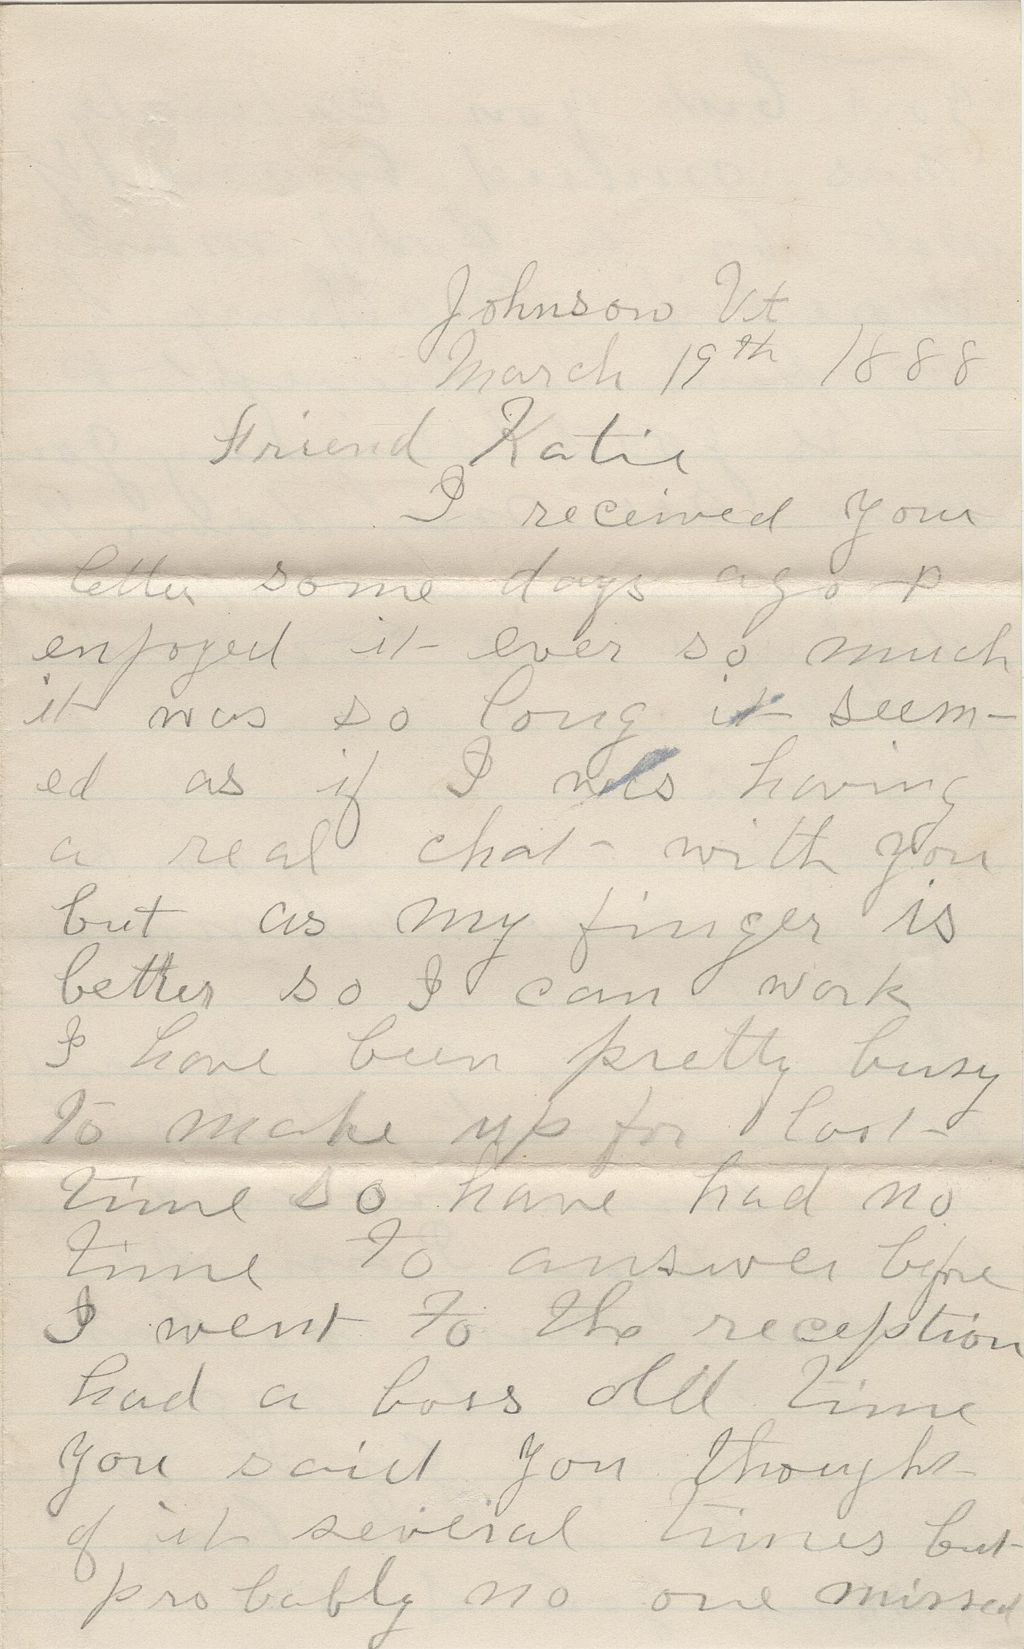 Johnson Vt
March 19th 1888
Friend Katie
I received your
letter some days ago &
enjoyed it ever so much
it was so long it seem-
ed as if I was having
a real chat with you
but as my finger is
better so I can work
I have been pretty busy
to make up for lost
time so have had no
time to answer before
I went to the reception
had a boss old time
you said you thought
of it several times but
probably no one missed